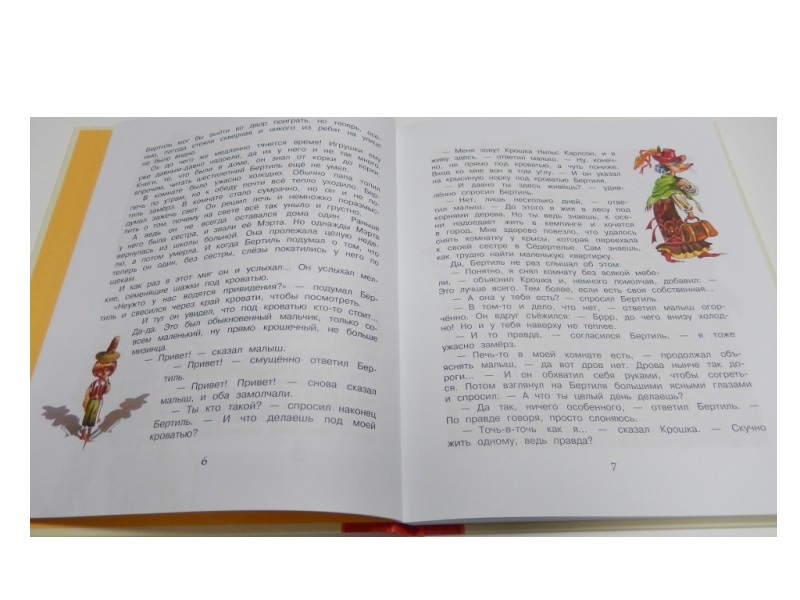 Бертиль мог бы выйти во двор поиграть, но теперь, осе-
нью, погода стояла скверная и никого из ребят на улице
не было видно.
До чего же медленно тянется время! Игрушки ему
уже давным-давно надоели, да их у него и не так много.
Книги, ну, что были в доме, он знал от корки до корки,
впрочем, читать шестилетний Бертиль ещё не умел.
В комнате было ужасно холодно. Обычно папа топил
печь по утрам, но к обеду почти всё тепло уходило. Бер-
тиль замёрз. В комнате стало сумрачно, но он и не по-
думал зажечь свет. Он решил лечь и немножко поразмыс-
лить о том, почему на свете всё так уныло и грустно.
А ведь он не всегда оставался дома один. Раньше
у него была сестра, и звали её Мэрта. Но однажды Мэрта
вернулась из школы больной. Она пролежала целую неде-
лю, а потом умерла. И когда Бертиль подумал о том, что
теперь он один, без сестры, слёзы покатились у него по
щекам.
И как раз в этот миг он и услыхал... Он услыхал мел-
кие, семенящие шажки под кроватью.
«Неужто у нас водятся привидения?» — подумал Бер-
тиль и свесился через край кровати, чтобы посмотреть.
И тут он увидел, что под кроватью кто-то стоит...
Да-да. Это был обыкновенный мальчик, только со-
всем маленький, ну прямо крошечный, не больше
мизинца.
— Привет! — сказал малыш.
— Привет! — смущённо ответил Бер-
тиль.
— Привет! Привет! — снова сказал
малыш, и оба замолчали.
— Ты кто такой? — спросил наконец
Бертиль. — И что делаешь под моей
кроватью?
6
— Меня зовут Крошка Нильс Карлсон, и я
живу здесь, — ответил малыш. — Ну, конеч-
но, не прямо под кроватью, а чуть пониже.
Вход ко мне вон в том углу. — И он указал
на крысиную норку под кроватью Бертиля.
— И давно ты здесь живёшь? — удив-
лённо спросил Бертиль.
— Нет, лишь несколько дней, — отве-
тил малыш. — До этого я жил в лесу под
корнями дерева. Но ты ведь знаешь, к осе-
ни надоедает жить в кемпинге и хочется
в город. Мне здорово повезло, что удалось
снять комнатку у крысы, которая переехала
к своей сестре в Сёдертелье. Сам знаешь,
как трудно найти маленькую квартирку.
Да, Бертиль не раз слышал об этом.
— Понятно, я снял комнату без всякой мебе-
ли, — объяснил Крошка и, немного помолчав, добавил: —
Это лучше всего. Тем более, если есть своя собственная...
— А она у тебя есть? — спросил Бертиль.
— В том-то и дело, что нет, — ответил малыш огор-
чённо. Он вдруг съёжился: — Бррр, до чего внизу холод-
но! Но и у тебя наверху не теплее.
— И то правда, — согласился Бертиль, — я тоже
ужасно замёрз.
— Печь-то в моей комнате есть, — продолжал объ-
яснять малыш, — да вот дров нет. Дрова нынче так до-
роги... — И он обхватил себя руками, чтобы согреть-
ся. Потом взглянул на Бертиля большими ясными глазами
и спросил: — А что ты целый день делаешь?
— Да так, ничего особенного, — ответил Бертиль. —
По правде говоря, просто слоняюсь.
— Точь-в-точь как я... — сказал Крошка. — Скучно
жить одному, ведь правда?
7